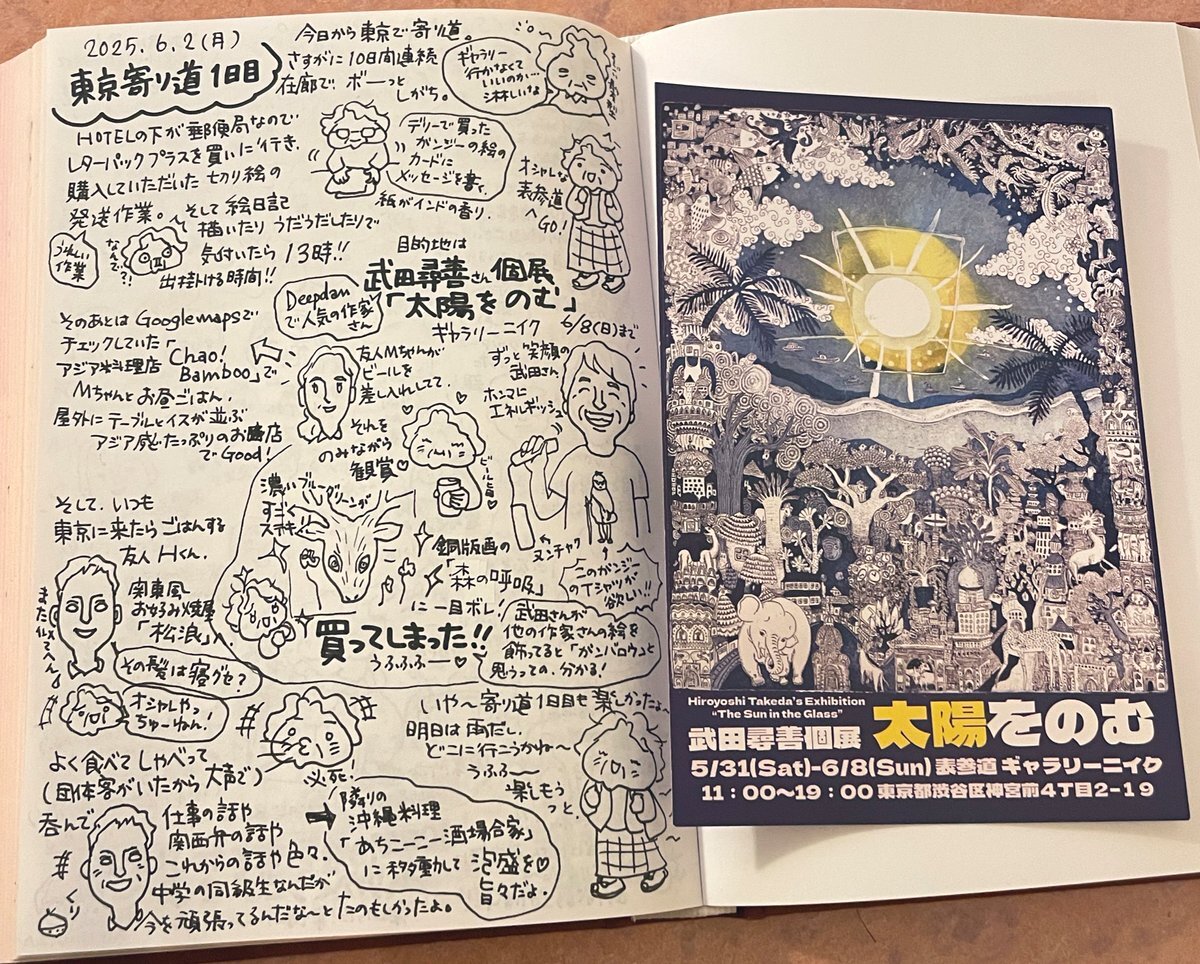 2025.6.2(月)
東京寄り道1日目
今日から東京で寄り道。
さすがに10日間連続
在廊で、ボーっと
しがち。
ギャラリー
行かなくて
いいのか…
淋しいな
HOTELの下が郵便局なので
レターパックプラスを買いに行き、
購入していただいた切り絵の
発送作業。
うれしい
作業
そして絵日記
描いたりうだうだしたりで
気付いたら13時!!
なんで??
出掛ける時間!!
デリーで買った
ガンジーの絵の
カードに
メッセージを書く。
紙がインドの香り。
オシャレな
表参道
へGO!
目的地は
武田尋善さん個展
「太陽をのむ」
ギャラリーニイク 6/8(日)まで
Deepdan
で人気の作家
さん
友人Mちゃんが
ビールを
差し入れしてて、
それを
のみながら
観賞♡
ビール旨♡
ずっと笑顔の
武田さん。
ホンマに
エネルギッシュ
ヌンチャク
このガンジー
のTシャツが
欲しい!!
濃いブルーグリーンが
すごく
ステキ
銅版画の
「森の呼吸」
に一目ボレ!
買ってしまった!!
うふふふー♡
武田さんが
他の作家さんの絵を
飾ってると「ガンバロウ」と
思うっての、分かる!
そのあとはGooglemapsで
チェックしていた「
アジア料理店 Chao!
Bamboo」で
Mちゃんとお昼ごはん。
屋外にテーブルとイスが並ぶ
アジア感たっぷりのお店
でGood!
そして、いつも
東京に来たらごはんする
友人Hくん。
関東風
お好み焼屋
「松浪」
その髪は寝グセ?
オシャレやっ
ちゅーねん!
よく食べてしゃべって
(団体客がいたから大声で)
必死!
呑んで
仕事の話や
関西弁の話や
これからの話や色々。
中学の同級生なんだが
今を頑張ってるんだな〜とたのもしかったよ。
くり
隣りの
沖縄料理
「あちこーこー酒場合家」
に移動して泡盛を♡
旨々だよ。
いや〜寄り道1日目も楽しかったよ〜
明日は雨だし、
どこに行こうかね〜
うふふ〜
楽しもう
っと。
Hiroyoshi Takeda's Exhibition
"The Sun in the Glass"
武田尋善個展 太陽をのむ
5/31(Sat)-6/8(Sun) 表参道 ギャラリーニイク
11:00〜19:00 東京都渋谷区神宮前4丁目2-19